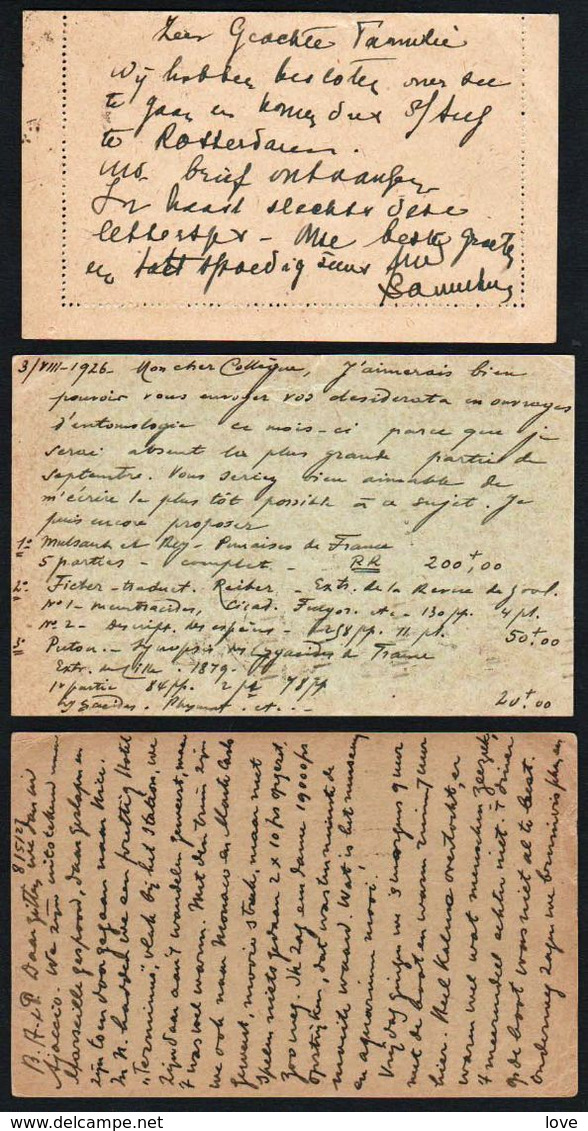 Zeer Geachte Familie
Wij hebben besloten over zee
te gaan en komen dus 8/Aug
te Rotterdam.
uw brief ontvangen
In haast slechts deze
letters - Onze beste groeten
en tot spoedig
3/VIII-1926- Mon cher Collègue, J'aimerais bien
pouvoir vous envoyer vos desiderata en ouvrages
d'entomologie ce mois-ci parce que je
serai absent la plus grande partie de
septembre. Vous seriez bien aimable de
m'écrire le plus tôt possible à ce sujet. Je
puis encore proposer
1º Mulsant et Rey - Punaises de France
5 parties - complet - RR 200f,00
2º Fieber - traduct. Reiber - Extr. de la Revue de
Nº 1 - Cicad. Fulgor. etc - 130 pp. 4 pl.
Nº 2 - Descript. des espèces - 258 pp. 11 pl. 50f00
3º Puton - Synopsis des de France
Extr. 1879 -
1e partie 84 pp. 2 pl 78 pp
etc... 20f00
8/5/27
B. A & P. Daar zitten we dan in
Ajaccio. We zijn uitstekend naar
Marseille gespoord, daar geslapen en
zijn toen doorgegaan naar Nice.
In N. hadden we een prettig Hotel
"Terminus", vlak bij het station, we
zijn daar aan 't wandelen geweest, maar
't was wel warm. Met den trein zijn
we ook naar Monaco en Monte Carlo
geweest, mooie streek, maar met
spelen niets gedaan 2 x 10 frs opgezet,
zoo weg. Ik zag een dame 1900 frs
opstrijken, dat was ten minste de
moeite waard. Wat is het museum
en aquarium mooi.
Vrijdag gingen we 's morgens 9 uur
met de boot en waren ruim 7 uur
hier. Heel kalme overtocht en
warm wel wat menschen zeeziek,
't meerendeel echter niet. 't diner
op de boot was niet al te best.
Onderweg zagen we bruinvisschen en
love
delcampe.net